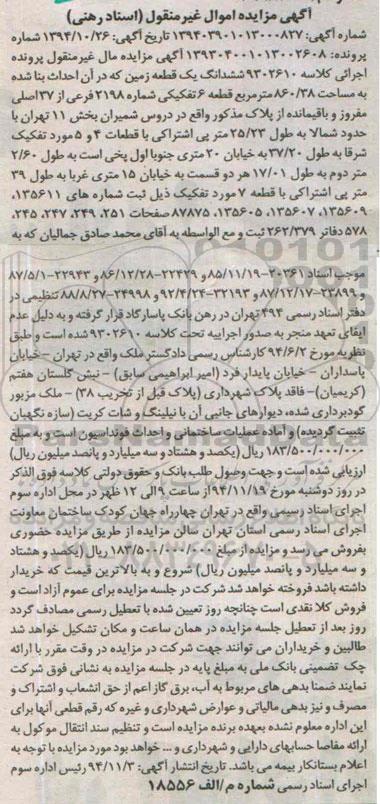 آگهی مزایده اموال غیرمنقول (اسناد رهنی)
شماره آگهی: ۱۳۹۴۰۳۹۰۱۰۱۳۰۰۰۸۲۷ تاریخ آگهی: ۱۳۹۴/۱۰/۲۶ شماره
پرونده: ۱۳۹۳۰۴۰۰۱۰۱۳۰۰۲۶۰۸ آگهی مزایده مال غیرمنقول پرونده
اجرائی کلاسه ۹۳۰۲۶۱۰ ششدانگ یک قطعه زمین که در آن احداث بنا شده
به مساحت ۸۶۰/۳۸ مترمربع قطعه ۶ تفکیکی شماره ۲۱۹۸ فرعی از ۳۷ اصلی
مفروز و باقیمانده از پلاک مذکور واقع در دروس شمیران بخش ۱۱ تهران با
حدود شمالا به طول ۲۵/۲۳ متر پی اشتراکی با قطعات ۴ و ۵ مورد تفکیک
شرقا به طول ۳۷/۲۰ به خیابان ۲۰ متری جنوبا اول پخی است به طول ۲/۶۰
متر دوم به طول ۱۷/۰۱ هر دو قسمت به خیابان ۱۵ متری غربا به طول ۳۹
متر پی اشتراکی با قطعه ۷ مورد تفکیک ذیل ثبت شماره های ۱۳۵۶۱۱،
۱۳۵۶۰۹، ۱۳۵۶۰۷، ۱۳۵۶۰۵، ۸۷۸۷۵ صفحات ۲۵۱، ۲۴۹، ۲۴۷، ۲۴۵،
۵۷۸ دفاتر ۲۶۲/۳۷۹ ثبت و مع الواسطه به آقای محمد صادق جمالیان که به
موجب اسناد ۲۰۳۶۱-۸۵/۱۱/۱۹ و ۲۲۴۲۹-۸۶/۱۲/۲۸ و ۲۲۹۴۳-۸۷/۵/۱
و ۲۳۸۹۹-۸۷/۱۲/۱۷ و ۳۲۱۹۳-۹۲/۴/۲۴ و ۲۴۹۹۸-۸۸/۸/۲۷ تنظیمی در
دفتر اسناد رسمی ۴۹۴ تهران در رهن بانک پاسارگاد قرار گرفته و به دلیل عدم
ایفای تعهد منجر به صدور اجراییه تحت کلاسه ۹۳۰۲۶۱۰ شده است و طبق
نظریه مورخ ۹۴/۶/۲ کارشناس رسمی دادگستر ملک واقع در تهران – خیابان
پاسداران – خیابان پایدار فرد (امیر ابراهیمی سابق) – نبش گلستان هفتم
(کریمیان) – فاقد پلاک شهرداری (پلاک قبل از تخریب ۳۸) – ملک مزبور
گودبرداری شده، دیوارهای جانبی آن با نیلینگ و شات کریت (سازه نگهبان
تثبیت گردیده) و آماده عملیات ساختمانی و احداث فونداسیون است و به مبلغ
۱۸۳/۵۰۰/۰۰۰/۰۰۰ ریال (یکصد و هشتاد و سه میلیارد و پانصد میلیون ریال)
ارزیابی شده است و جهت وصول طلب بانک و حقوق دولتی کلاسه فوق الذکر
در روز دوشنبه مورخ ۹۴/۱۱/۱۹ از ساعت ۹ الی ۱۲ ظهر در محل اداره سوم
اجرای اسناد رسمی واقع در تهران چهارراه جهان کودک ساختمان معاونت
اجرای اسناد رسمی استان تهران سالن مزایده از طریق مزایده حضوری
بفروش می رسد و مزایده از مبلغ ۱۸۳/۵۰۰/۰۰۰/۰۰۰ ریال (یکصد و هشتاد
و سه میلیارد و پانصد میلیون ریال) شروع و به بالاترین قیمت که خریدار
داشته باشد فروخته خواهد شد شرکت در جلسه مزایده برای عموم آزاد است و
فروش کلا نقدی است چنانچه روز تعیین شده با تعطیل رسمی مصادف گردد
روز بعد از تعطیل جلسه مزایده در همان ساعت و مکان تشکیل خواهد شد
طالبین و خریداران می توانند جهت شرکت در مزایده در وقت مقرر با ارائه
چک تضمینی بانک ملی به مبلغ پایه در جلسه مزایده به نشانی فوق شرکت
نمایند ضمنا بدهی های مربوط به آب، برق گاز اعم از حق انشعاب و اشتراک و
مصرف و نیز بدهی مالیاتی و عوارض شهرداری و غیره که رقم قطعی آنها برای
این اداره معلوم نشده بعهده برنده مزایده است و تنظیم سند انتقال موکول به
ارائه مفاصا حسابهای دارایی و شهرداری و ... خواهد بود مورد مزایده با توجه به
اعلام بستانکار بیمه می باشد. تاریخ انتشار آگهی: ۹۴/۱۱/۳ رئیس اداره سوم
اجرای اسناد رسمی شماره م/الف ۱۸۵۵۶